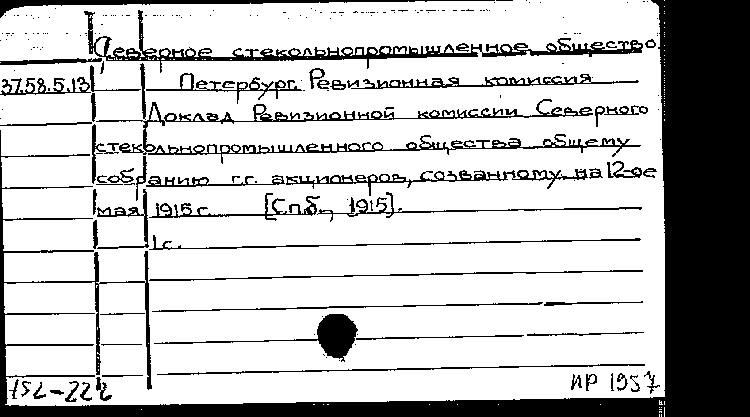 Северное стекольнопромышленное общество.
37.58.5.13 Петербург. Ревизионная комиссия
Доклад Ревизионной комиссии Северного
стекольнопромышленного общества общему
собранию г.г. акционеров, созванному на 12-ое
мая 1915 г. [Спб., 1915].
1 с.
152-222 ИР 1957